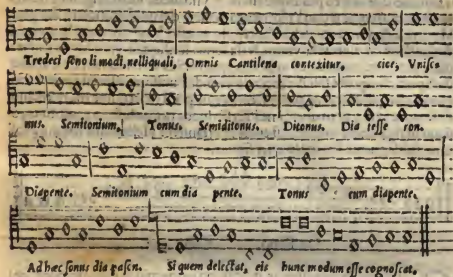 Tredeci sono li modi, nelli quali, Omnis Cantilena contexitur, cioe, Vnisco
nus. Semitonium, Tonus. Semiditonus. Ditonus. Dia tesse ron.
Diapente. Semitonium cum dia pente. Tonus cum diapente.
Ad hæc sonus dia pasen. Si quem delectat, eis hunc modum esse cognoscat.